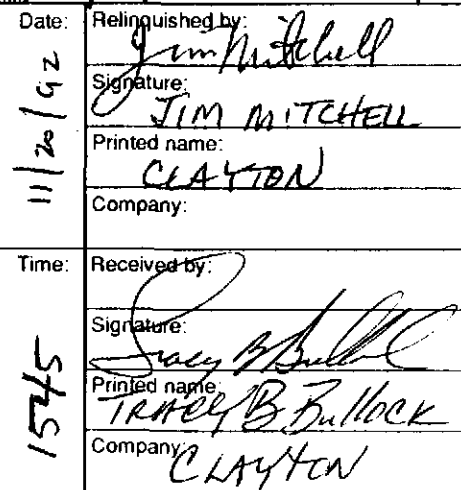 Date:
11/20/92
Relinquished by:
Jim Mitchell
Signature:
JIM MITCHELL
Printed name:
CLAYTON
Company:
Time:
1545
Received by:
Signature:
Tracy B Bullock
Printed name:
TRACEY B. BULLOCK
Company:
CLAYTON